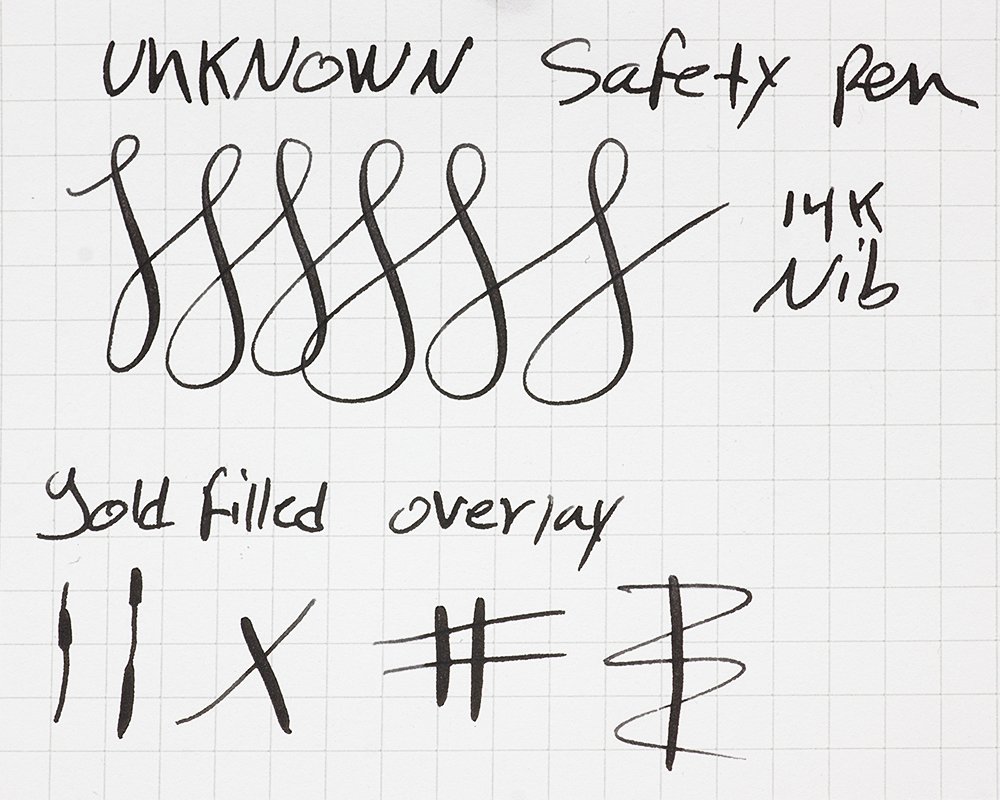 UNKNOWN Safety Pen
14K
Nib
gold filled overlay